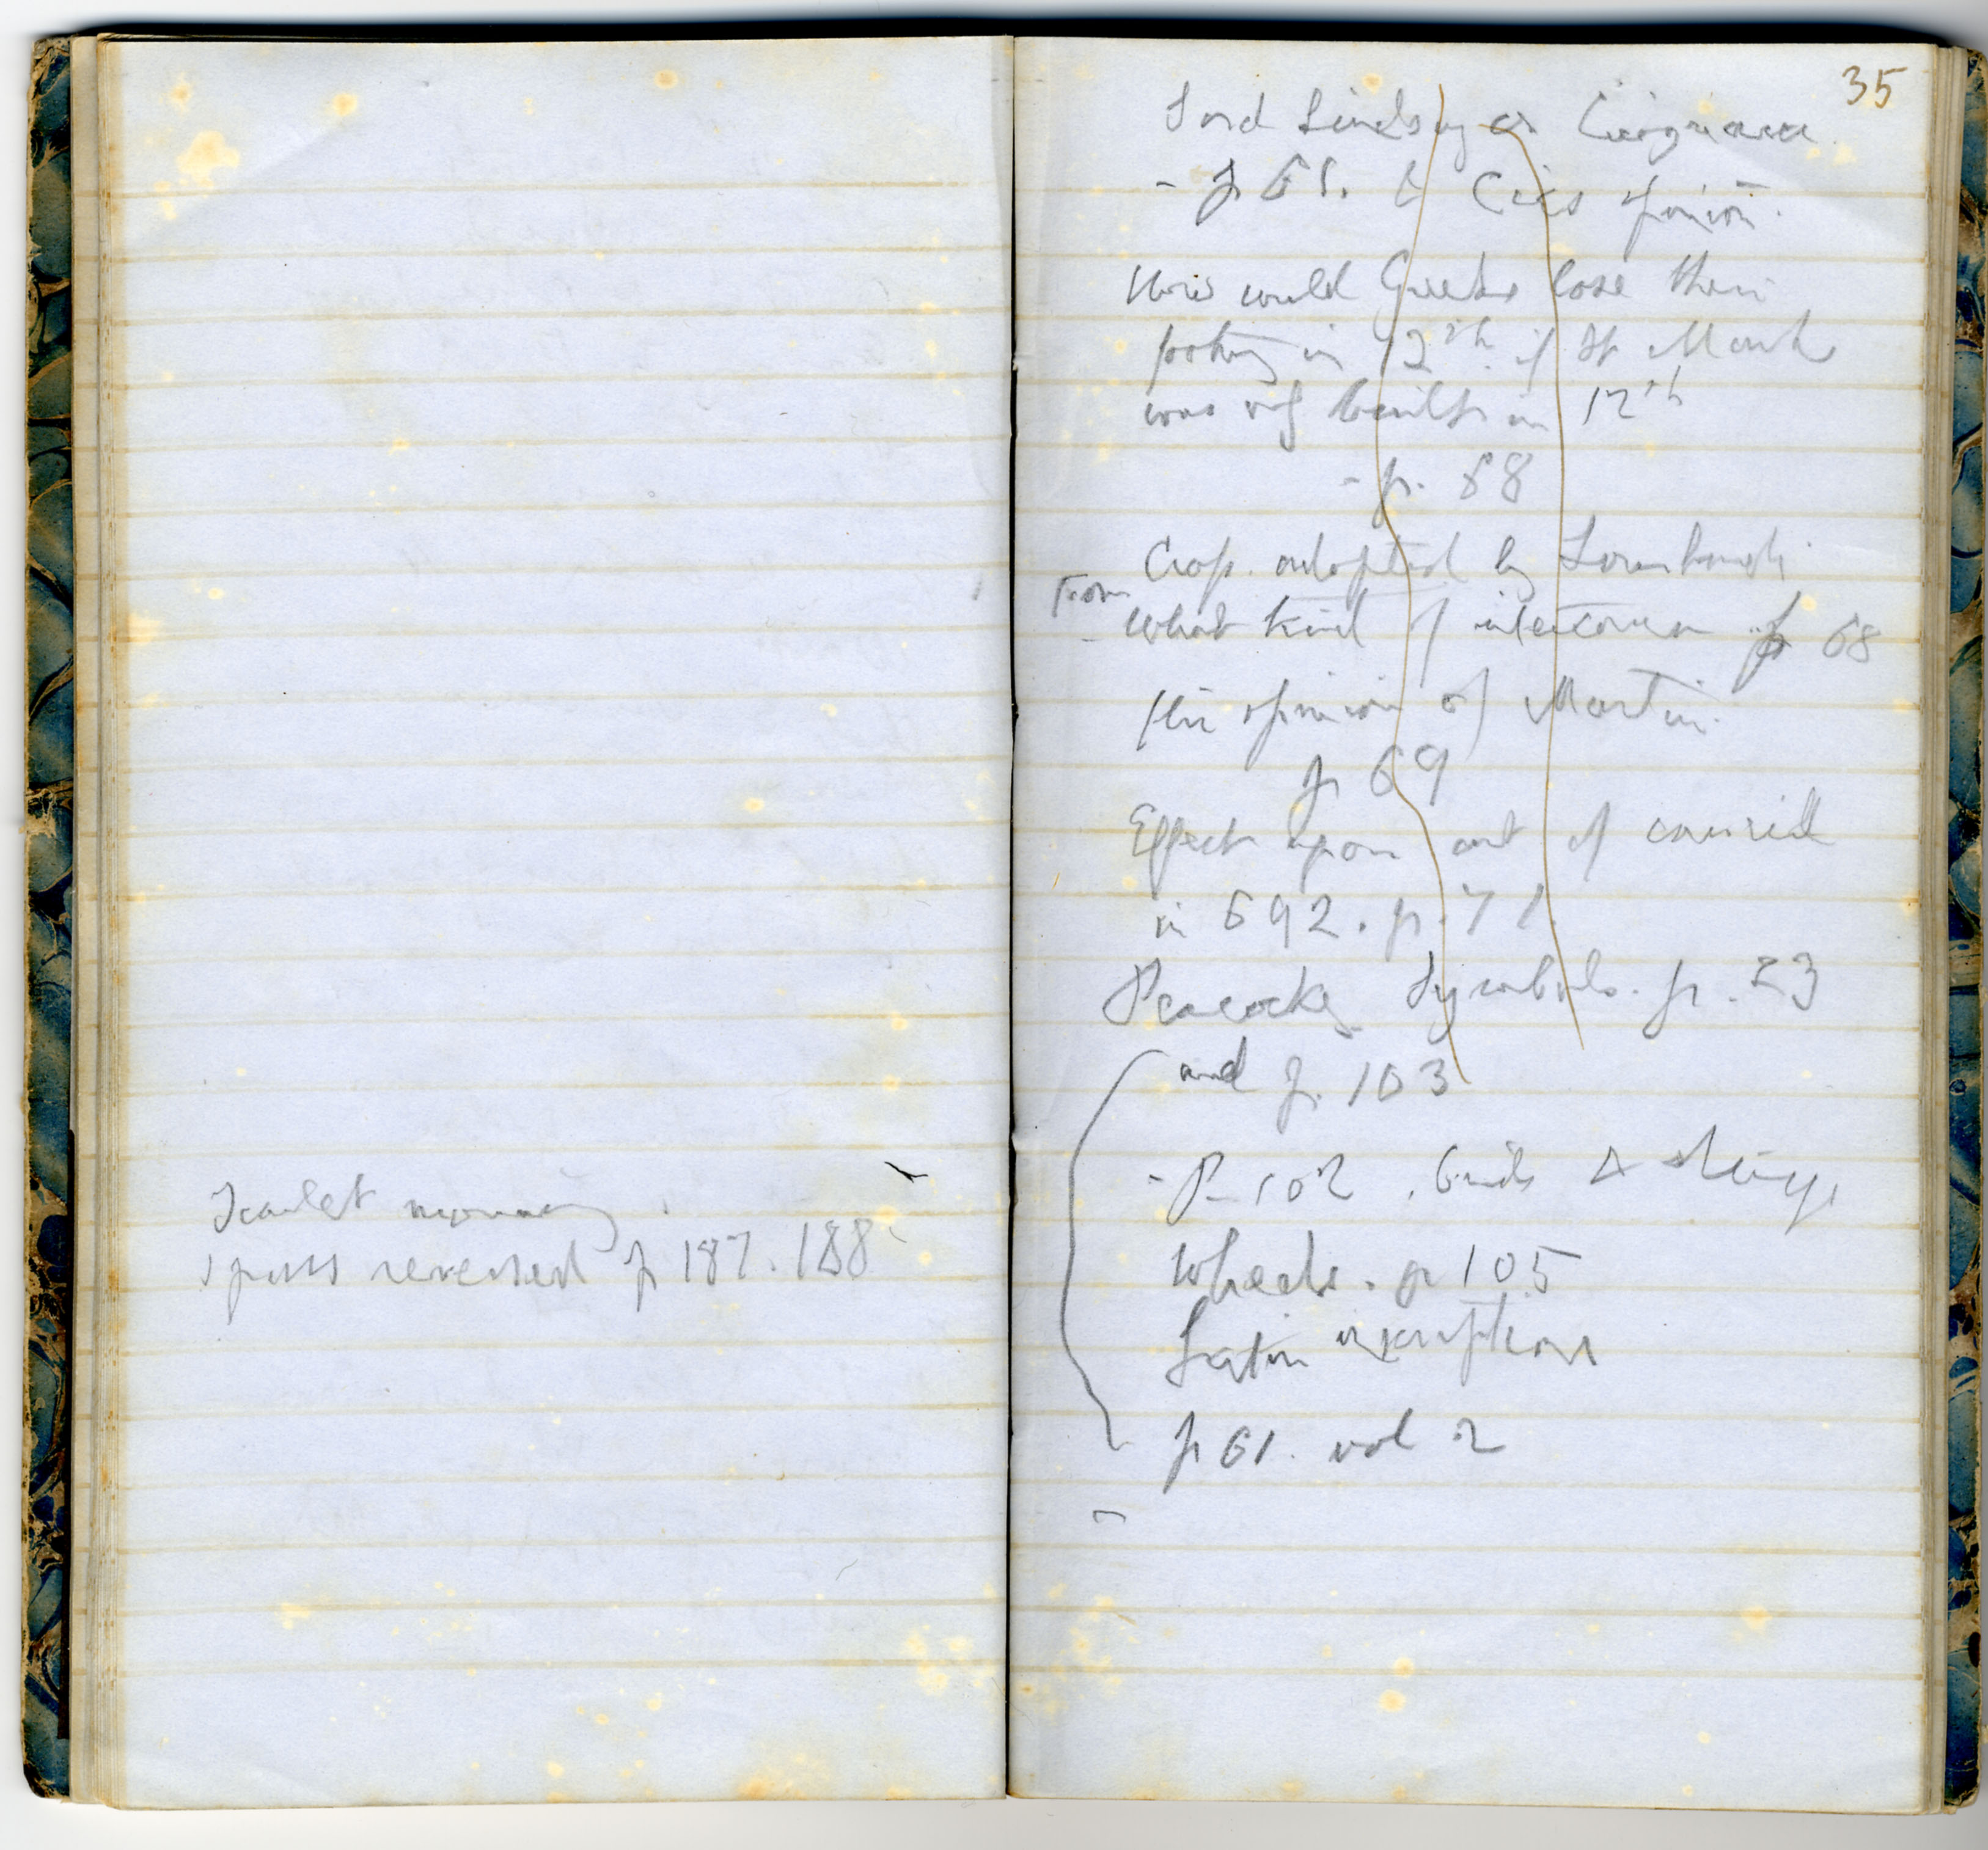 Scarlet morning.
spurs reversed p 187. 188
35
Lord Lindsay or Cicognara.
- p 61. Cic's opinion.
How could Greeks lose their
footing in 12th. if St Marks
was not built in 12th
- p. 68
Cross. adopted by Lombards.
From
What kind of intercourse p 68
His opinion of Martin.
p 69
Effect upon art of council
in 692. p. 71.
Peacocks Symbols. p. 23
and p. 103
- P 102. birds &
Wheels. p 105
Latin inscriptions
p 61. vol 2